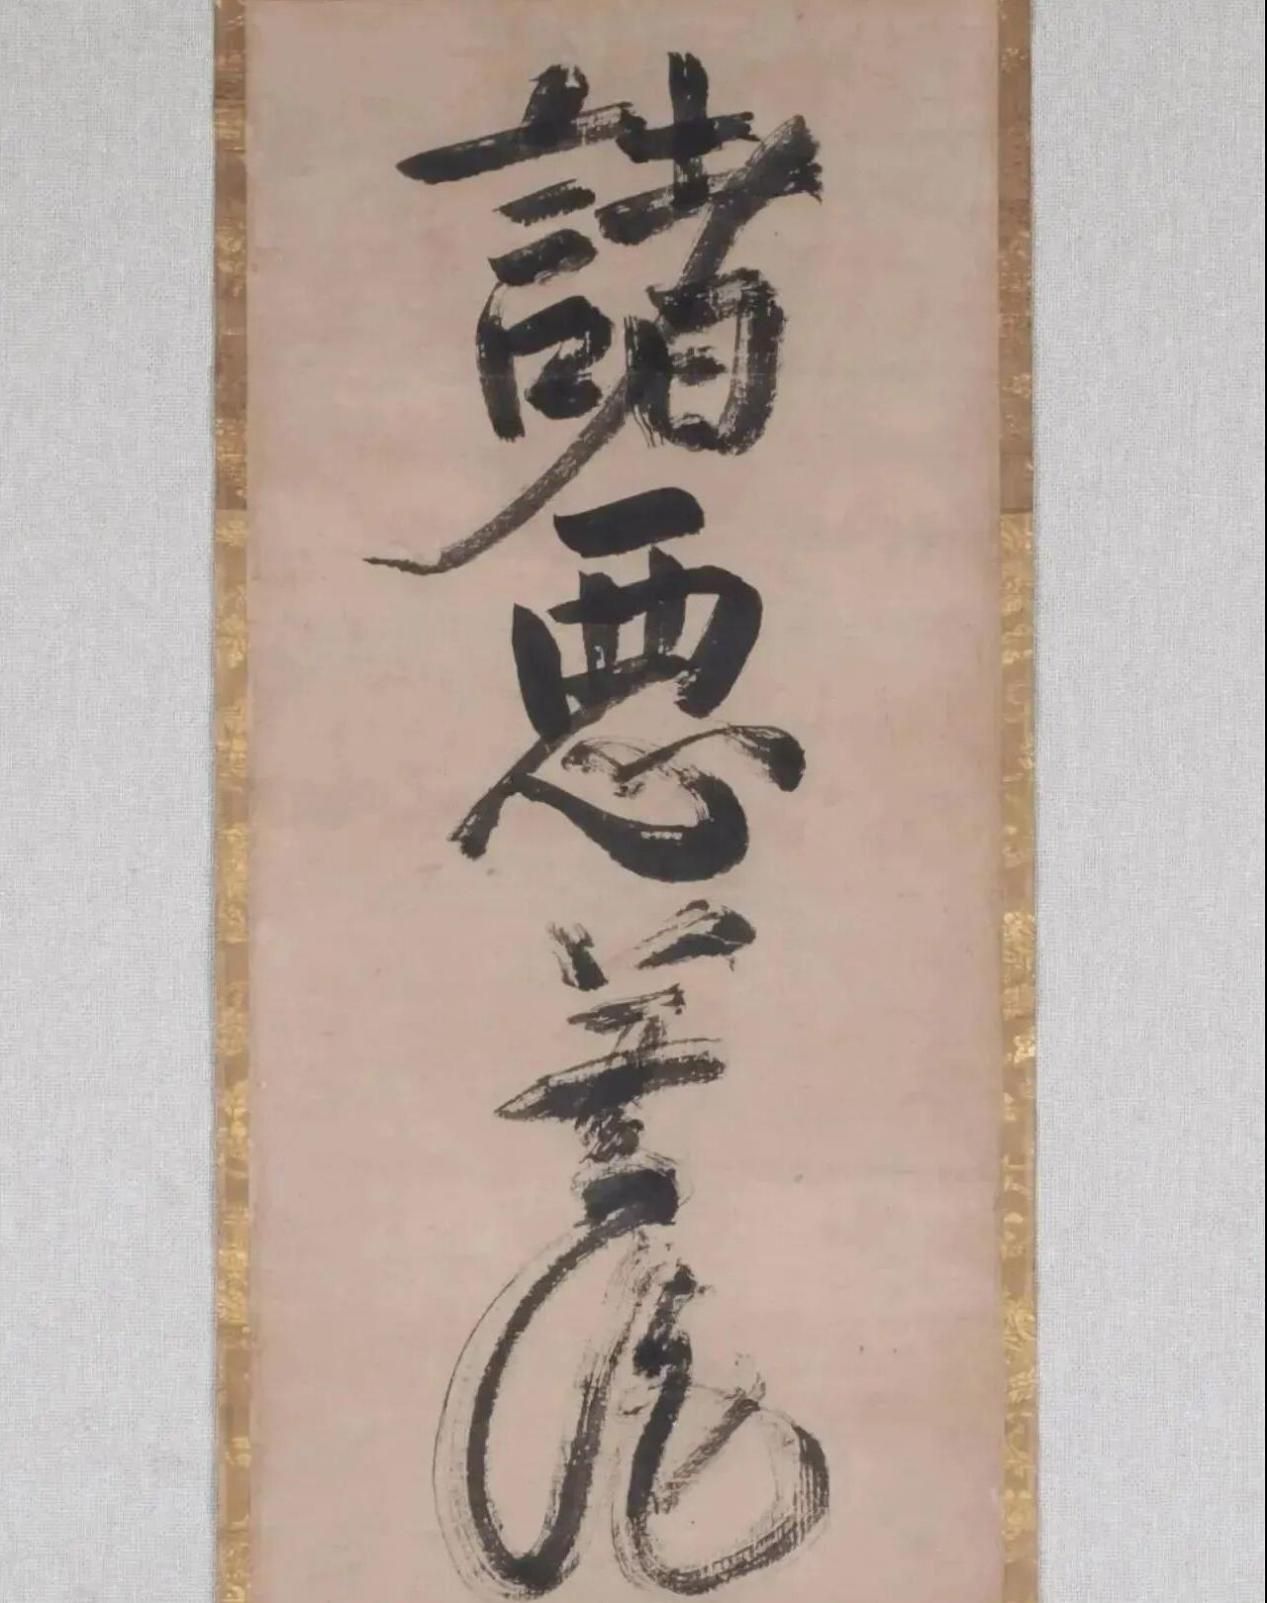 諸悪莫作